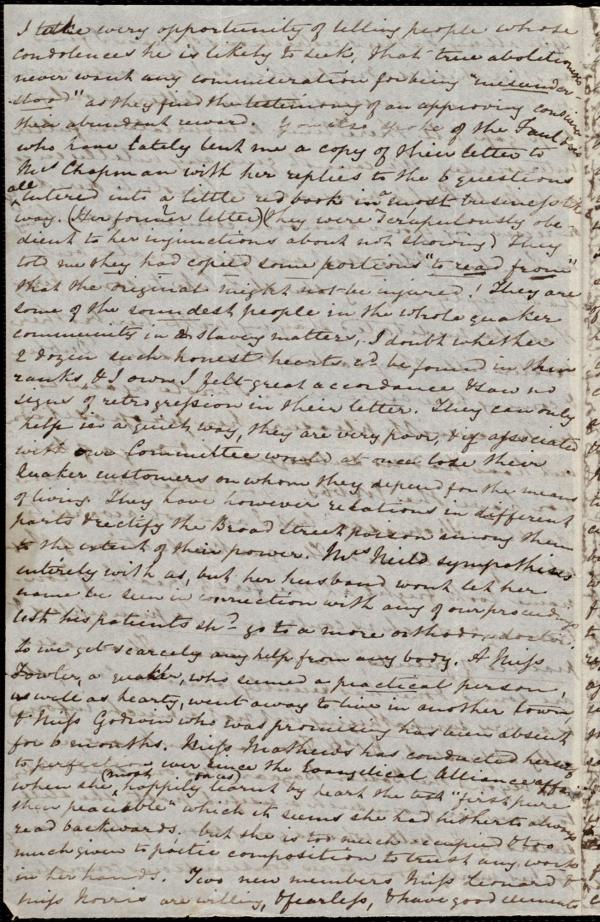 I take every opportunity of telling people whose
condolences he is likely to seek, that true abolitionists
never want any commiseration for being "misunder
stood" as they find the testimony of an approving conscience
their abundant reward. You also spoke of the
who have lately lent me a copy of their letter to
Mrs Chapman with her replies to the 6 questions
all entered into a little red book in most businesslike
way. (Her former letter) (They were scrupulously obe
dient to her injunctions about not showing) They
told me they had copied some portions "to read from"
that the original might not be injured! They are
some of the soundest people in the whole quaker
community in a slavery matter, I doubt whether
2 dozen such honest hearts cd be found in their
ranks, & I own I felt great accordance & saw no
signs of retrogression in their letter. They can only
help in a quiet way, they are very poor, & if associated
with our Committee would at once lose their
Quaker customers on whom they depend for the means
of living. They have however relations in different
parts & rectify the Broad Street poison among them
to the extent of their power. Mrs Neild sympathises
entirely with us, but her husband wont let her
name be seen in connection with any of our proceedgs.
lest his patients shd go to a more orthodox doctor.
So we get scarcely any help from any body. A Miss
Fowler, a quaker, who seemed a practical person,
as well as hearty, went away to live in another town,
& Miss Godwin who was promising has been absent
for 6 months. Miss Mathews has conducted herself
to perfection ever since the Evangelical Alliance affair
when she (most happily on us) learnt by heart the text "first pure
then peaceable" which it seems she had hitherto always
read backwards, but she is too much occupied & too
much given to poetic composition to trust any work
in her hands. Two new members Miss Leonard &
Miss Norris are willing, & fearless, & have good elements